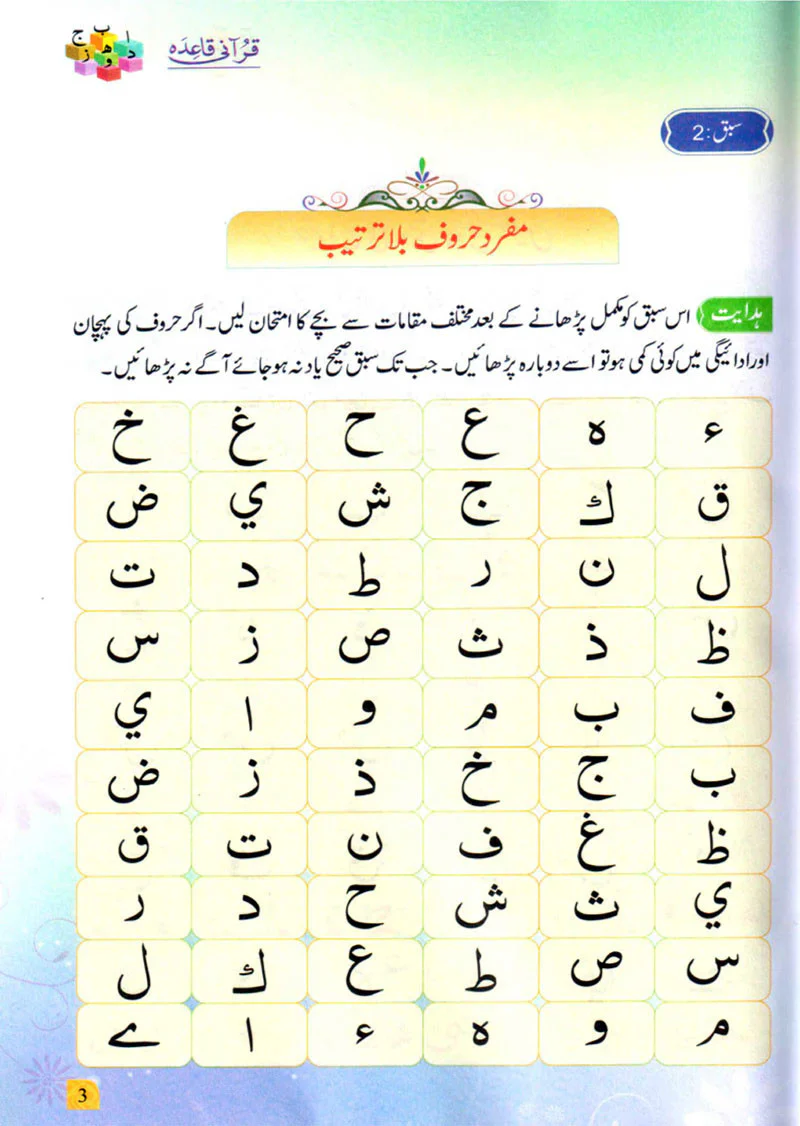 ا ب ج
د ھ ز
و
قرآنی قاعدہ
سبق: 2
مفرد حروف بلا ترتیب
ہدایت اس سبق کو مکمل پڑھانے کے بعد مختلف مقامات سے بچے کا امتحان لیں۔ اگر حروف کی پہچان
اور ادائیگی میں کوئی کمی ہو تو اسے دوبارہ پڑھائیں۔ جب تک سبق صحیح یاد نہ ہو جائے آگے نہ پڑھائیں۔
ء ه ع ح غ خ
ق ك ج ش ي ض
ل ن ر ط د ت
ظ ذ ث ص ز س
ف ب م و ا ي
ب ج خ ذ ز ض
ظ غ ف ن ت ق
ي ث ش ح د ر
س ص ط ع ك ل
م و ه ء ا ے
3